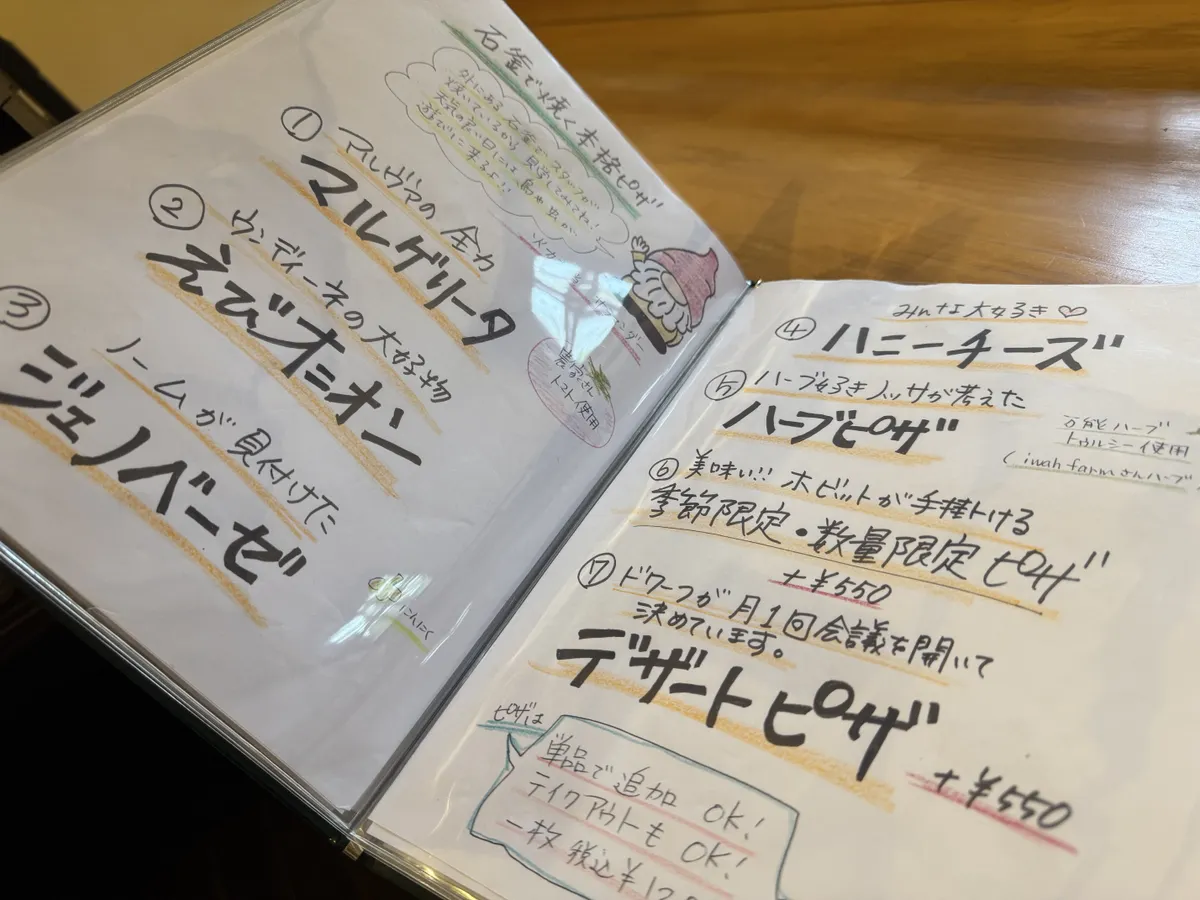 石釜で焼く本格ピザ
外にある石釜でスタッフが
焼いているから見学してみてね!
天気の良い日には鳥や虫が
遊びに来るよ!!
① マルヴァの全力
マルゲリータ
火力
サラマンダー
農家さん
トマト使用
② ウンディーネの大好物
えびオニオン
③ ノームが見付けた
ジェノベーゼ
にんにく
みんな大好き♡
④ ハニーチーズ
⑤ ハーブ好きノッサが考えた
ハーブピザ
万能ハーブ
トゥルシー使用
(iwah farmさんハーブ
⑥ 美味い!! ホビットが手掛ける
季節限定・数量限定ピザ
+¥550
⑦ ドワーフが月1回会議を開いて
決めています。
デザートピザ
+¥550
ピザは
単品で追加 OK!
テイクアウトも OK!
一枚 税込¥12